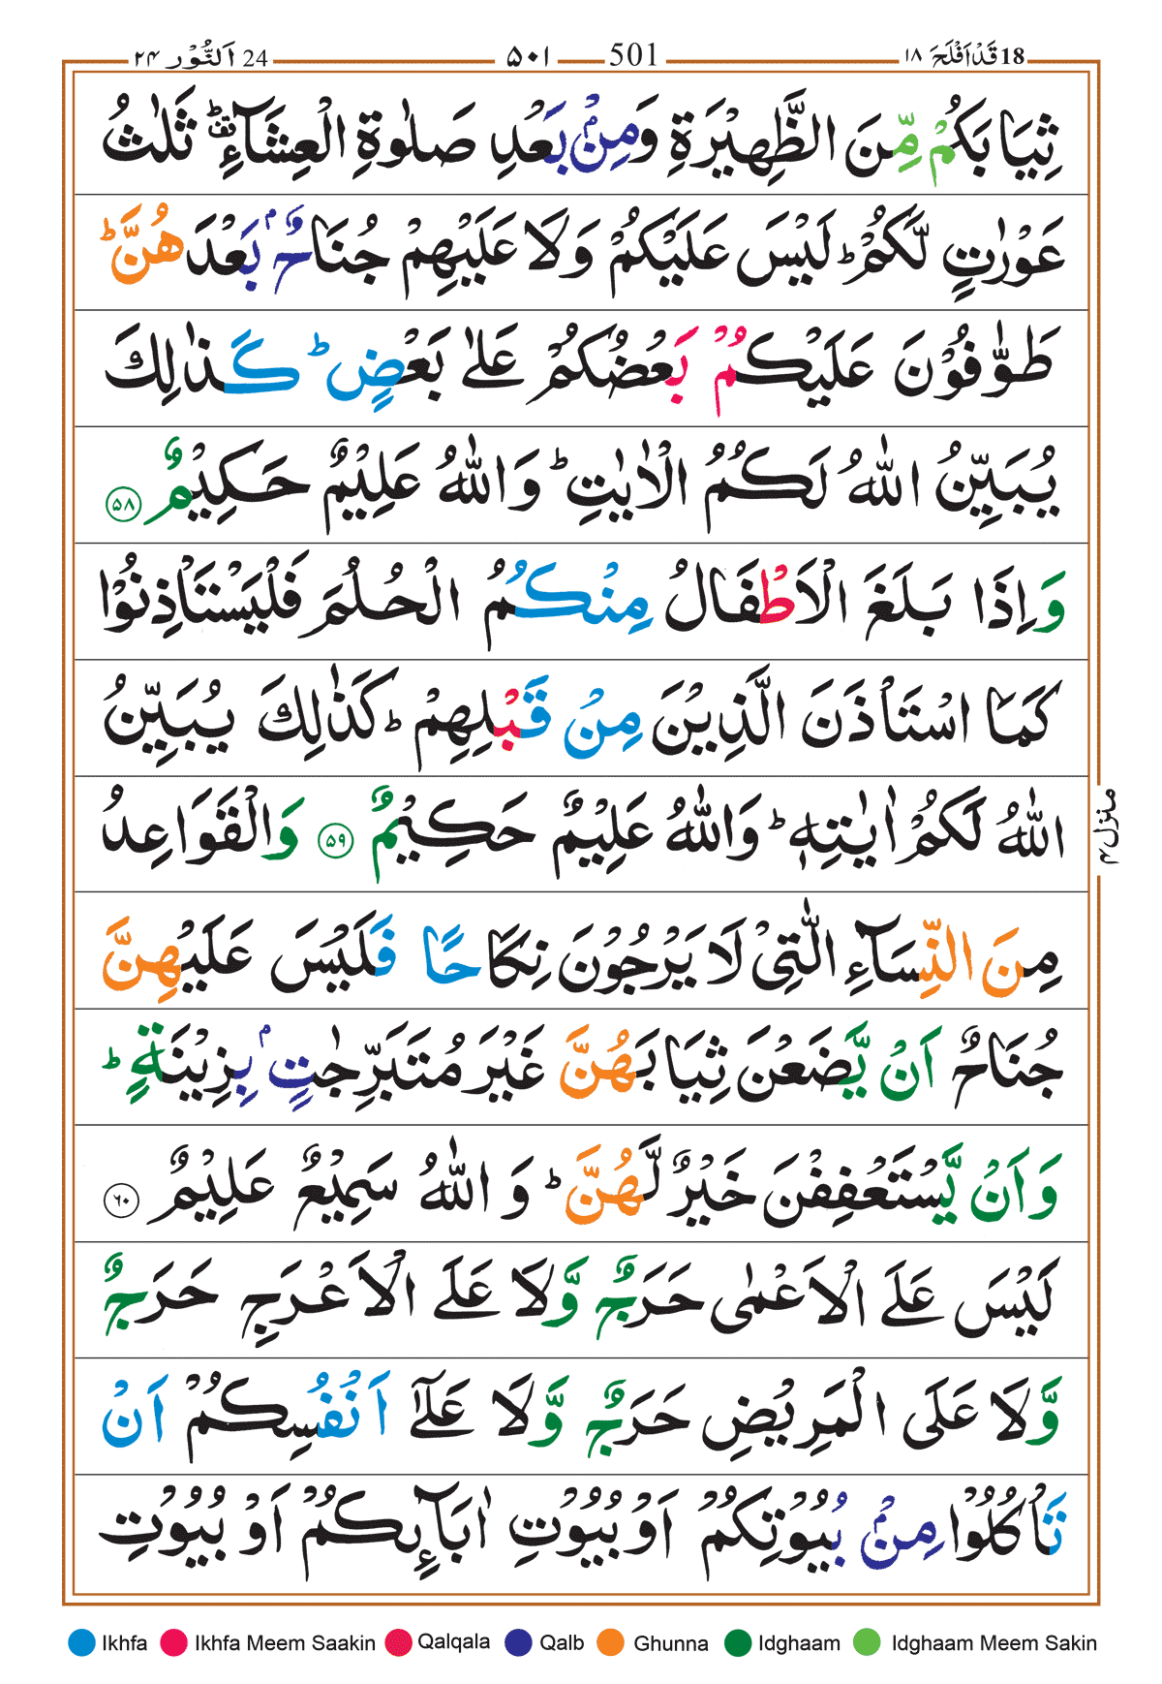 18 قَدْ اَفْلَحَ ١٨ 501 ٥٠١ 24 اَلنُّوْر ٢٤
ثِيَابَكُمْ مِّنَ الظَّهِيْرَةِ وَمِنْۢ بَعْدِ صَلٰوةِ الْعِشَآءِ ؕ قف ثَلٰثُ
عَوْرٰتٍ لَّكُمْ ؕ لَيْسَ عَلَيْكُمْ وَلَا عَلَيْهِمْ جُنَاحٌۢ بَعْدَهُنَّ ؕ
طَوّٰفُوْنَ عَلَيْكُمْ بَعْضُكُمْ عَلٰى بَعْضٍ ؕ كَذٰلِكَ
يُبَيِّنُ اللّٰهُ لَكُمُ الْاٰيٰتِ ؕ وَاللّٰهُ عَلِيْمٌ حَكِيْمٌ ۵۸
وَاِذَا بَلَغَ الْاَطْفَالُ مِنْكُمُ الْحُلُمَ فَلْيَسْتَاْذِنُوْا
كَمَا اسْتَاْذَنَ الَّذِيْنَ مِنْ قَبْلِهِمْ ؕ كَذٰلِكَ يُبَيِّنُ
اللّٰهُ لَكُمْ اٰيٰتِهٖ ؕ وَاللّٰهُ عَلِيْمٌ حَكِيْمٌ ۵۹ وَالْقَوَاعِدُ
مِنَ النِّسَآءِ الّٰتِىْ لَا يَرْجُوْنَ نِكَاحًا فَلَيْسَ عَلَيْهِنَّ
جُنَاحٌ اَنْ يَّضَعْنَ ثِيَابَهُنَّ غَيْرَ مُتَبَرِّجٰتٍۢ بِزِيْنَةٍ ؕ
وَاَنْ يَّسْتَعْفِفْنَ خَيْرٌ لَّهُنَّ ؕ وَاللّٰهُ سَمِيْعٌ عَلِيْمٌ ۶۰
لَيْسَ عَلَى الْاَعْمٰى حَرَجٌ وَّلَا عَلَى الْاَعْرَجِ حَرَجٌ
وَّلَا عَلَى الْمَرِيْضِ حَرَجٌ وَّلَا عَلٰٓى اَنْفُسِكُمْ اَنْ
تَاْكُلُوْا مِنْۢ بُيُوْتِكُمْ اَوْ بُيُوْتِ اٰبَآئِكُمْ اَوْ بُيُوْتِ
منزل ۴
Ikhfa Ikhfa Meem Saakin Qalqala Qalb Ghunna Idghaam Idghaam Meem Sakin